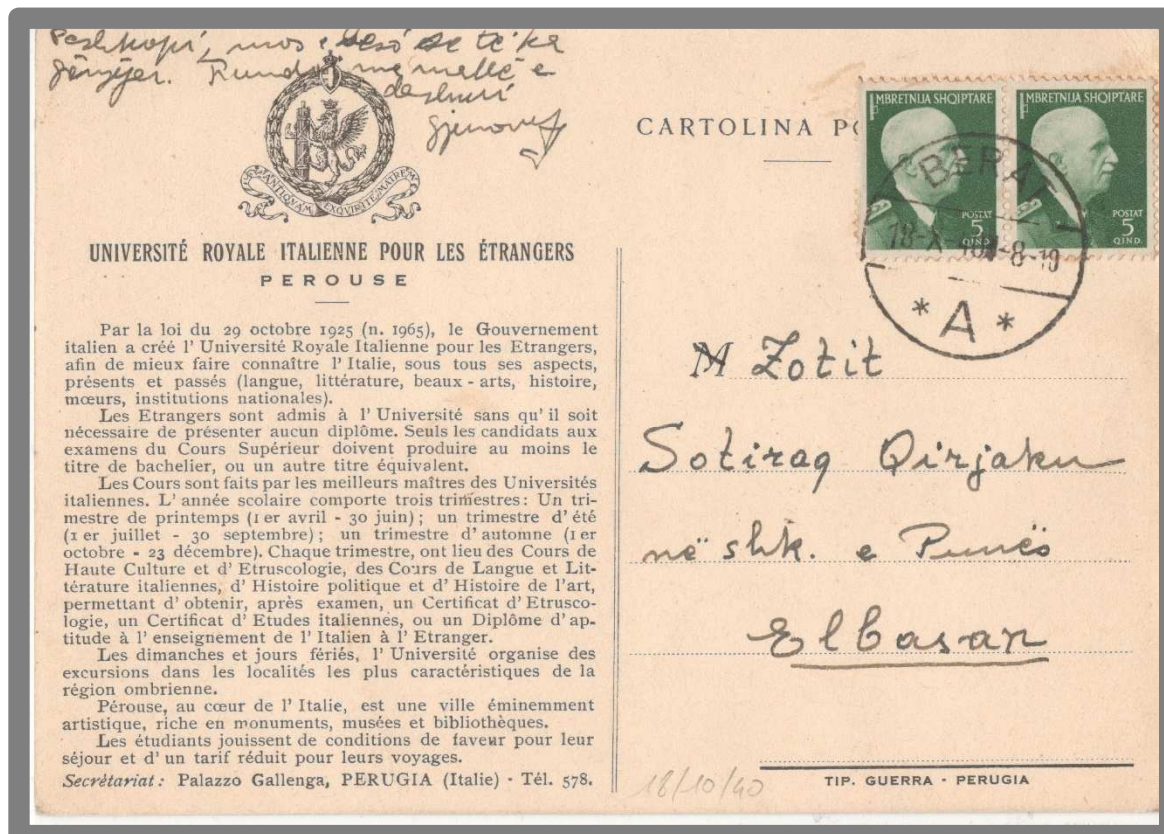 Peshkopi, mos e besó se të ka
gënjyer.
me mallë e
dashuri
ANTIQVAM EXQVIRITE MATREM
UNIVERSITÉ ROYALE ITALIENNE POUR LES ÉTRANGERS
PEROUSE
Par la loi du 29 octobre 1925 (n. 1965), le Gouvernement
italien a créé l' Université Royale Italienne pour les Etrangers,
afin de mieux faire connaître l' Italie, sous tous ses aspects,
présents et passés (langue, littérature, beaux - arts, histoire,
mœurs, institutions nationales).
Les Etrangers sont admis à l' Université sans qu' il soit
nécessaire de présenter aucun diplôme. Seuls les candidats aux
examens du Cours Supérieur doivent produire au moins le
titre de bachelier, ou un autre titre équivalent.
Les Cours sont faits par les meilleurs maîtres des Universités
italiennes. L' année scolaire comporte trois trimestres: Un tri-
mestre de printemps (1 er avril - 30 juin); un trimestre d' été
(1 er juillet - 30 septembre); un trimestre d' automne (1 er
octobre - 23 décembre). Chaque trimestre, ont lieu des Cours de
Haute Culture et d' Etruscologie, des Cours de Langue et Lit-
térature italiennes, d' Histoire politique et d' Histoire de l' art,
permettant d' obtenir, après examen, un Certificat d' Etrusco-
logie, un Certificat d' Etudes italiennes, ou un Diplôme d' ap-
titude à l' enseignement de l' Italien à l' Etranger.
Les dimanches et jours fériés, l' Université organise des
excursions dans les localités les plus caractéristiques de la
région ombrienne.
Pérouse, au cœur de l' Italie, est une ville éminemment
artistique, riche en monuments, musées et bibliothèques.
Les étudiants jouissent de conditions de faveur pour leur
séjour et d' un tarif réduit pour leurs voyages.
Secrétariat: Palazzo Gallenga, PERUGIA (Italie) - Tél. 578.
CARTOLINA PO
MBRETNIJA SHQIPTARE
POSTAT
5
QIND.
MBRETNIJA SHQIPTARE
POSTAT
5
QIND.
BERAT
* A *
M Zotit
Sotiraq Qirjaku
në shk. e Punës
Elbasan
18/10/40
TIP. GUERRA - PERUGIA